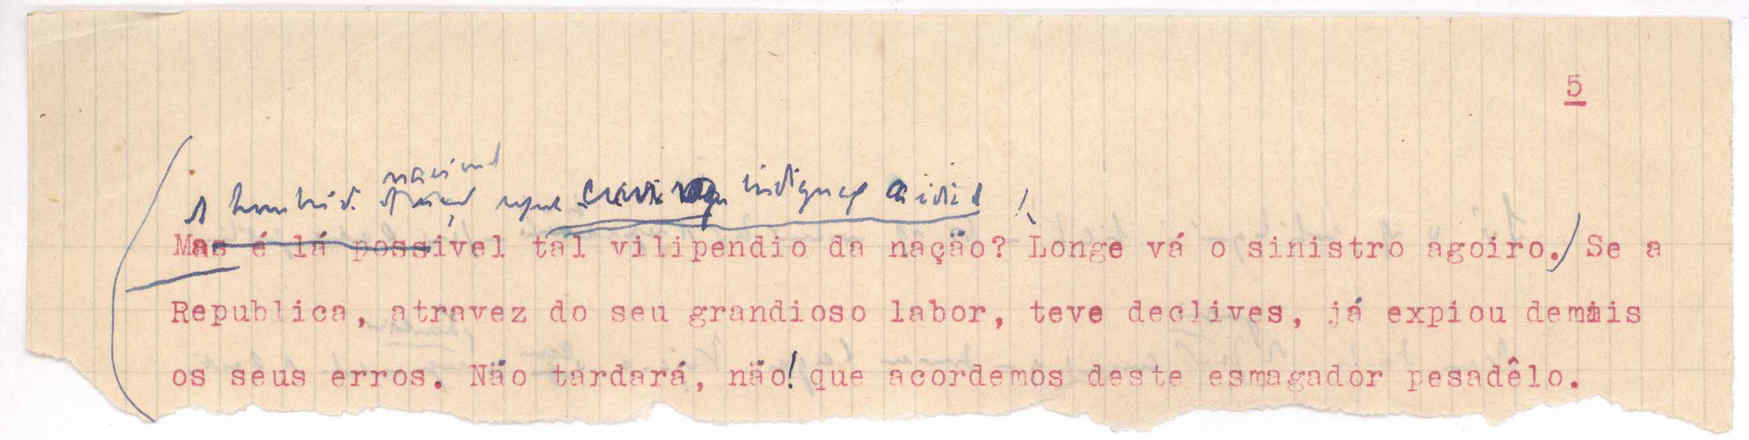 5
nacional
A
Mas é lá possivel tal vilipendio da nação? Longe vá o sinistro agoiro. Se a
Republica, atravez do seu grandioso labor, teve declives, já expiou demais
os seus erros. Não tardará, não! que acordemos deste esmagador pesadêlo.